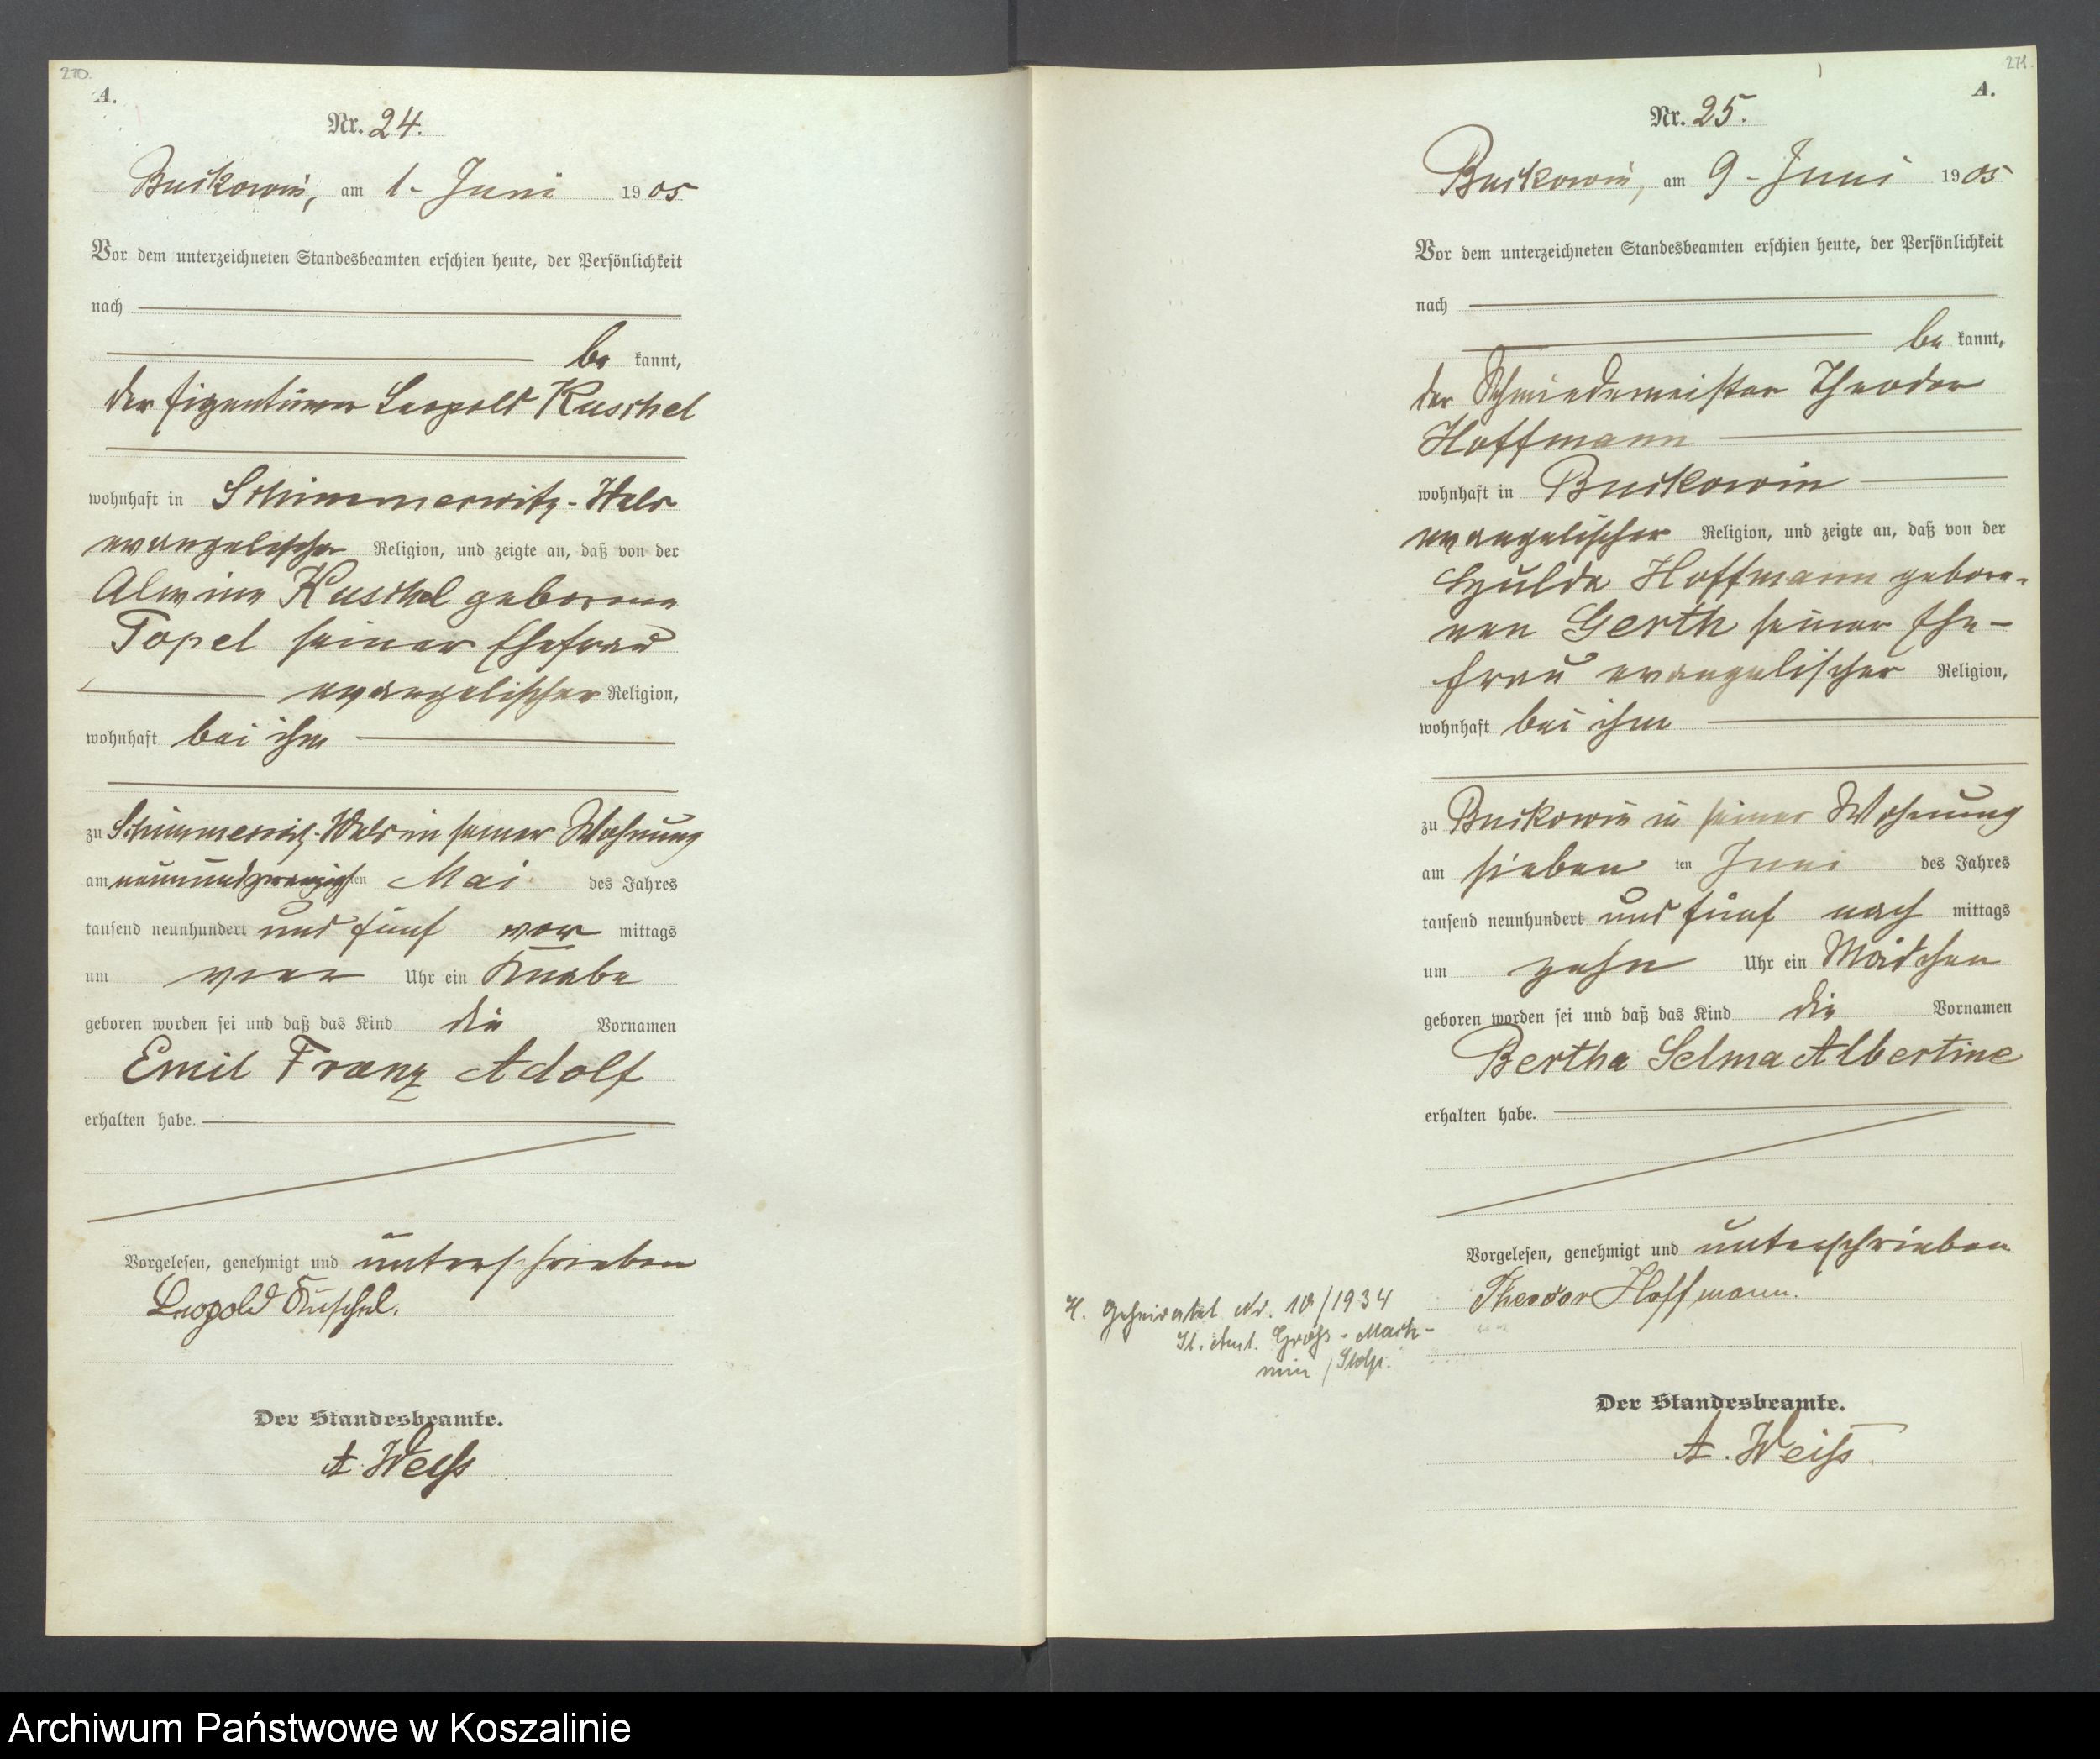 270.
A.
Nr. 24.
Buckowin, am 1. Juni 1905
Vor dem unterzeichneten Standesbeamten erschien heute, der Persönlichkeit
nach
be kannt,
der Eigentümer Leopold Kuschel
wohnhaft in Schimmerwitz-Wald
evangelischer Religion, und zeigte an, daß von der
Alwine Kuschel geborene
Topel seiner Ehefrau
evangelischer Religion,
wohnhaft bei ihm
zu Schimmerwitz-Wald in seiner Wohnung
am neunundzwanzigsten Mai des Jahres
tausend neunhundert und fünf vor mittags
um vier Uhr ein Knabe
geboren worden sei und daß das Kind die Vornamen
Emil Franz Adolf
erhalten habe.
Vorgelesen, genehmigt und unterschrieben
Leopold Kuschel.
Der Standesbeamte.
A. Weiß
271.
A.
Nr. 25.
Buckowin, am 9. Juni 1905
Vor dem unterzeichneten Standesbeamten erschien heute, der Persönlichkeit
nach
be kannt,
der Schmiedemeister Theodor
Hoffmann
wohnhaft in Buckowin
evangelischer Religion, und zeigte an, daß von der
Hulda Hoffmann gebore-
nen Gerth seiner Ehe-
frau evangelischer Religion,
wohnhaft bei ihm
zu Buckowin in seiner Wohnung
am sieben ten Juni des Jahres
tausend neunhundert und fünf nach mittags
um zehn Uhr ein Mädchen
geboren worden sei und daß das Kind die Vornamen
Bertha Selma Albertine
erhalten habe.
Vorgelesen, genehmigt und unterschrieben
Theodor Hoffmann.
H. Geheiratet Nr. 10/1934
St. Amt. Groß-Mach-
min /Stolp.
Der Standesbeamte.
A. Weiß.
Archiwum Państwowe w Koszalinie